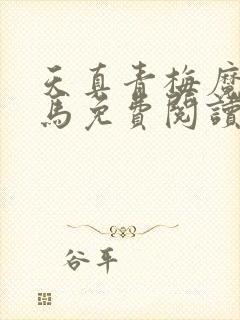 天真青梅魔
馬免費閱讀
谷平